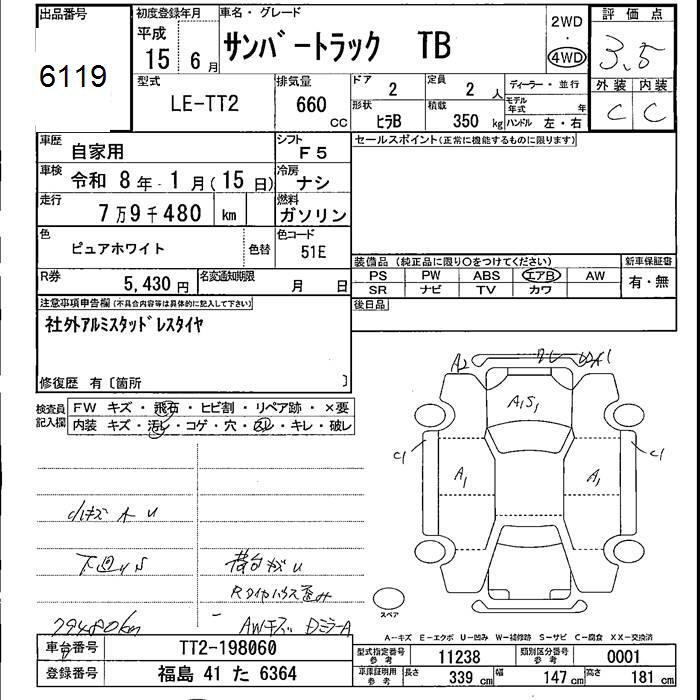 出品番号 初度登録年月 車名・グレード 2WD 評価点
6119 平成 15年 6月 サンバートラック TB ・ 4WD 3.5
型式 排気量 ドア 定員 ディーラー・並行 外装 内装
LE-TT2 660 CC 2 2人 モデル年式 年 C C
形状 積載 ハンドル 左・右
ﾋﾗB 350 kg
車歴 自家用 シフト F5 セールスポイント(正常に機能するものに限ります)
車検 令和 8年 1月(15日) 冷房 ナシ
走行 7万9千480 km 燃料 ガソリン
色 ピュアホワイト 色替 色コード 51E
装備品(純正品に限り〇をつけてください) 新車保証書
R券 5,430円 名変通知期限 月 日 PS PW ABS エアB AW 有・無
SR ナビ TV カワ
注意事項申告欄(不具合内容等は具体的に記入して下さい) 後日品
社外アルミスタッドレスタイヤ
修復歴 有〔箇所 〕
検査員記入欄 FW キズ・飛石・ヒビ割・リペア跡・×要
内装 キズ・汚レ・コゲ・穴・スレ・キレ・破レ
A2
A1
A1 S1
C1 C1
A1 A1
小キズ A U
下回りS
Rタイヤハウス歪み
79480km AWキズ DミラーA
スペア
A-キズ E-エクボ U-凹み W-補修跡 S-サビ C-腐食 XX-交換済
車台番号 TT2-198060 型式指定番号 参考 11238 類別区分番号 参考 0001
登録番号 福島 41 た 6364 車庫証明用 参考 長さ 339 cm 幅 147 cm 高さ 181 cm